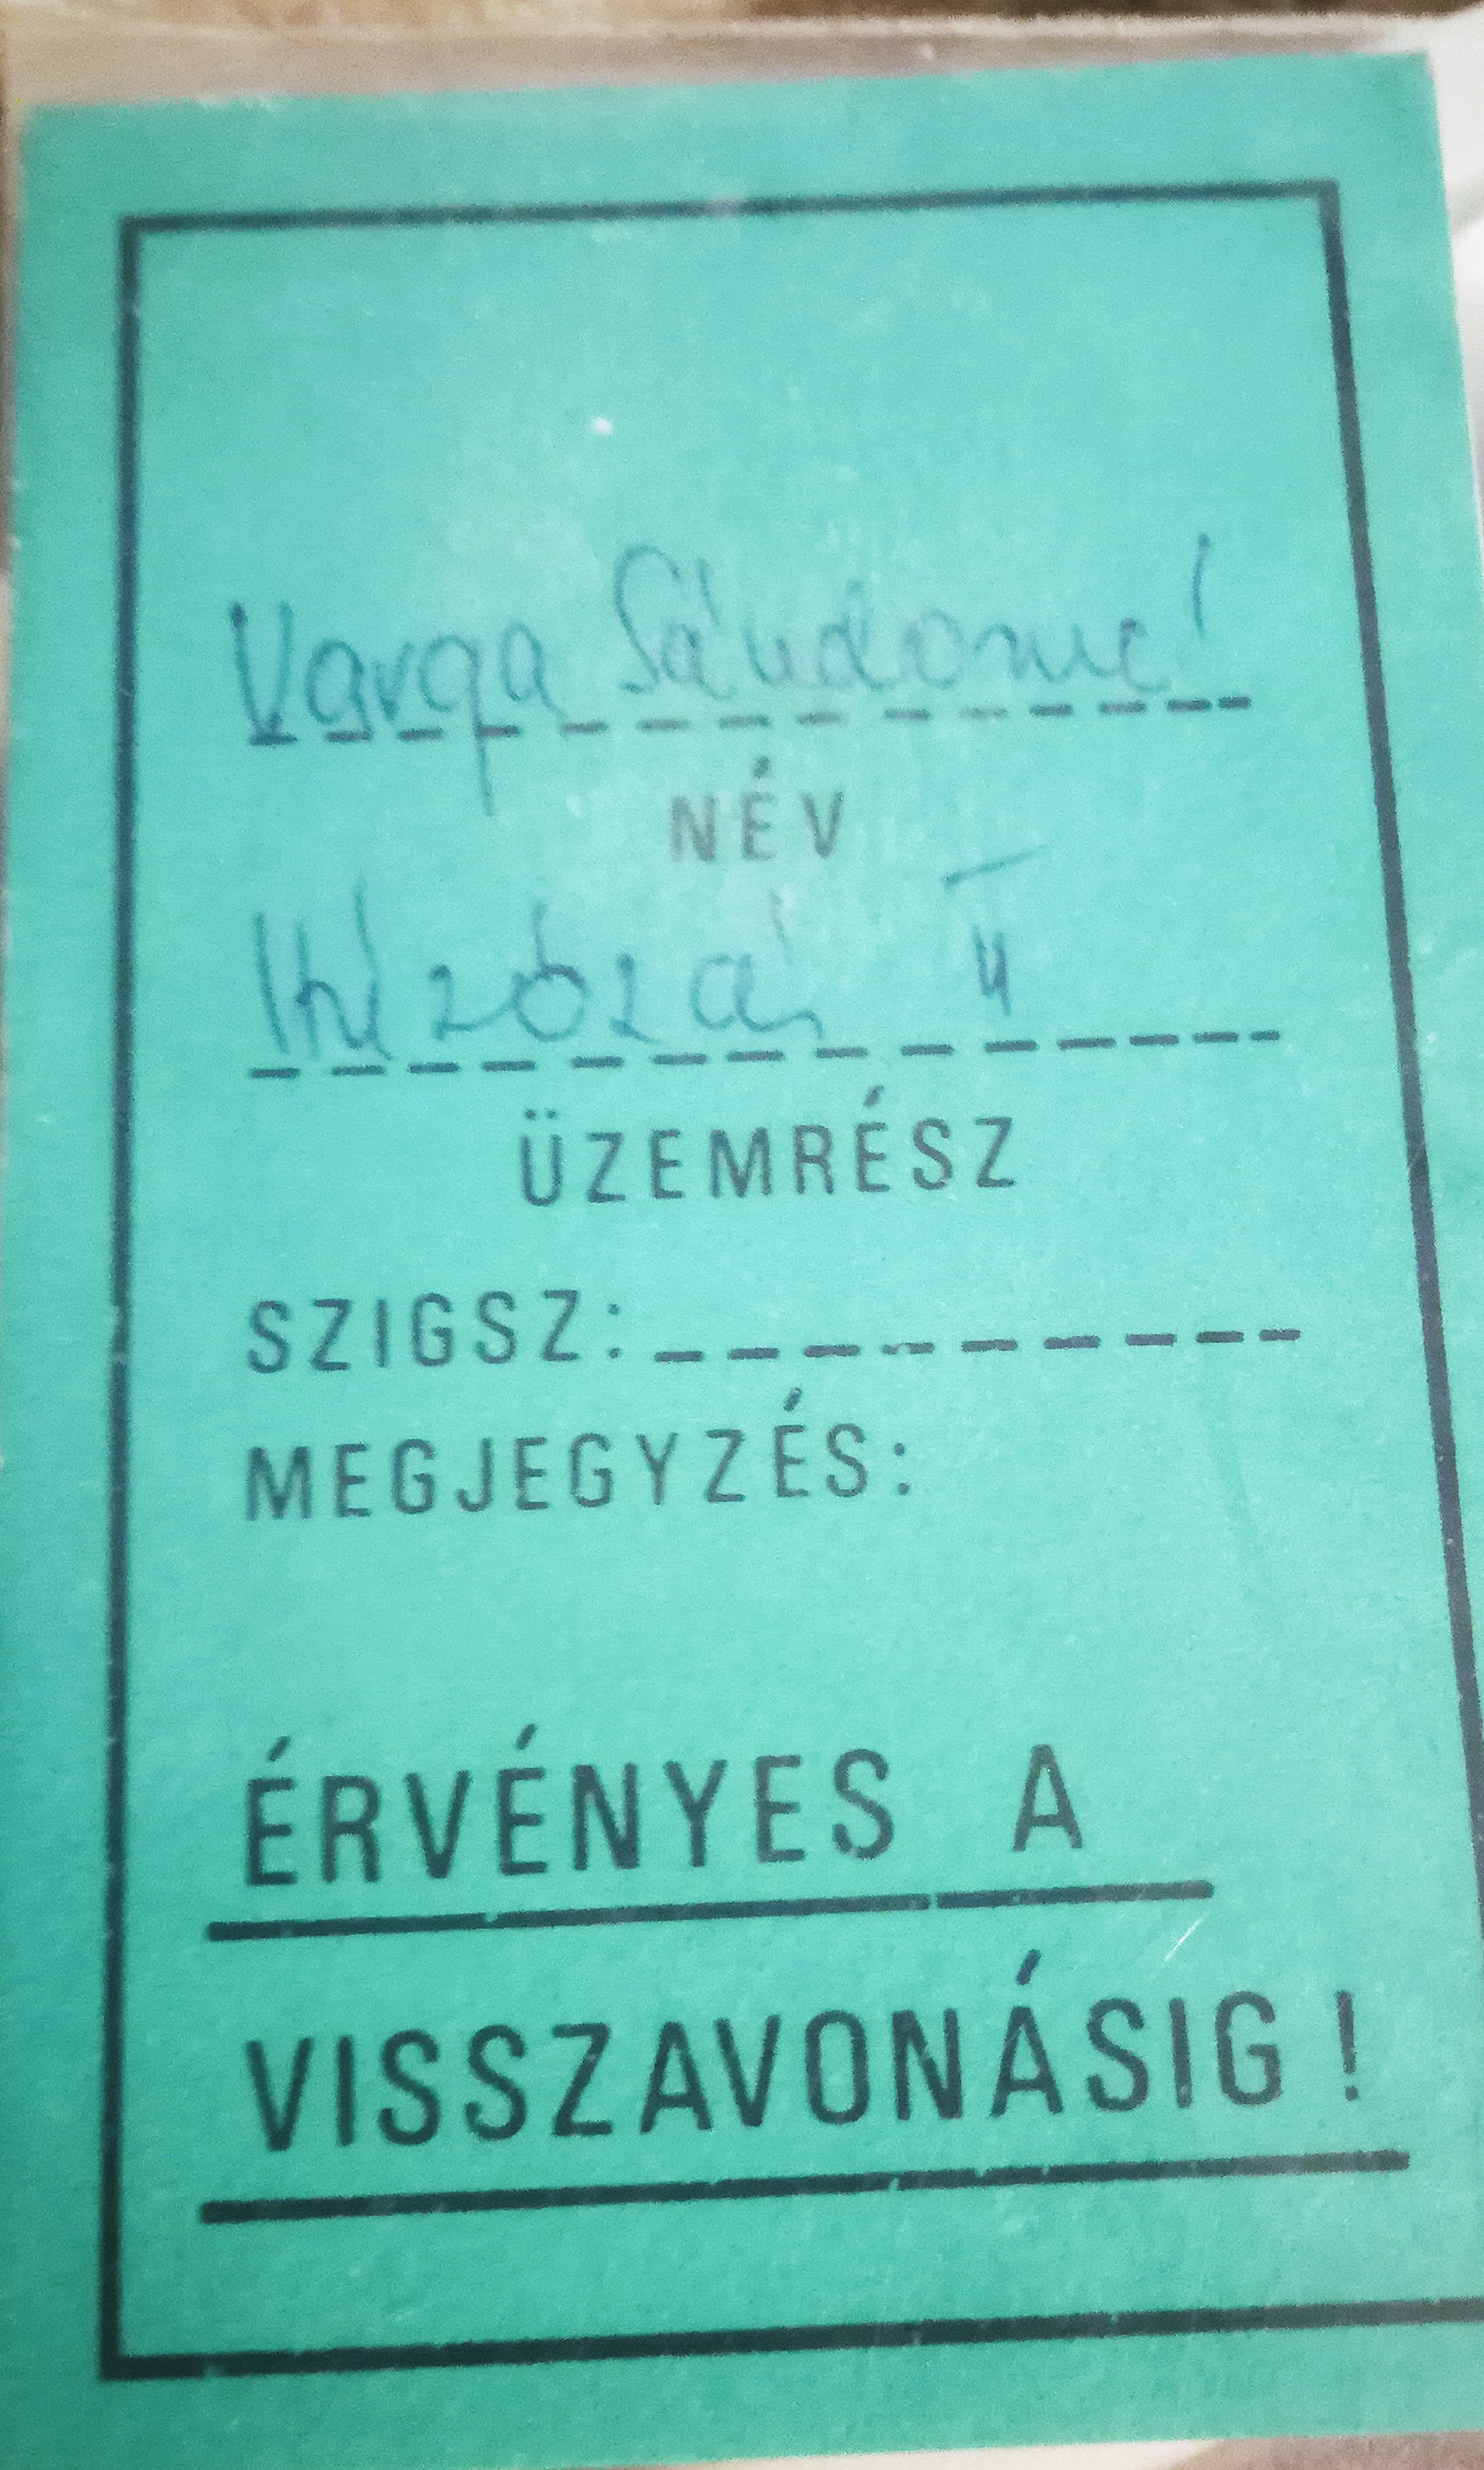 Varga Sándorné
NÉV
ÜZEMRÉSZ
SZIGSZ:
MEGJEGYZÉS:
ÉRVÉNYES A
VISSZAVONÁSIG!